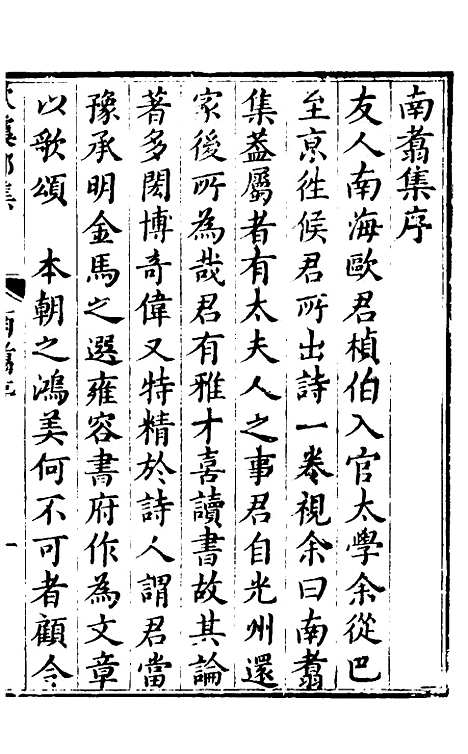 南翥集序
友人南海歐君楨伯入官太學余從巴
至京徃候君所出詩一卷視余曰南翥
集葢屬者有太夫人之事君自光州還
家後所為哉君有雅才喜讀書故其論
著多閎博奇偉又特精於詩人謂君當
豫承明金馬之選雍容書府作為文章
以歌頌　本朝之鴻美何不可者顧令
南翥序
一